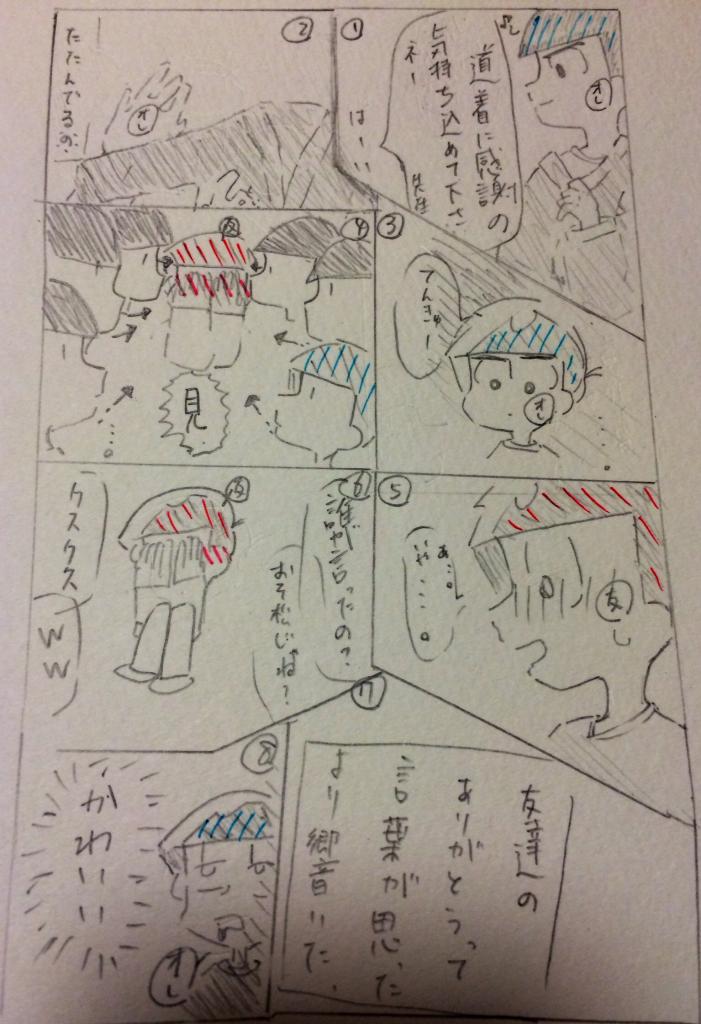 ①
道着に感謝の
気持ち込めて下さ
ネー
先生
はーい
オレ
②
オレ
たたんでるの。
③
てんきゅー
オレ
④
友
見
⑤
友
あ…。
いや…。
⑥
誰が言ったの?
おそ松じゃね?
友
クスクス
ww
⑦
友達の
ありがとうって
言葉が思った
より響いた、
⑧
かわいい
オレ